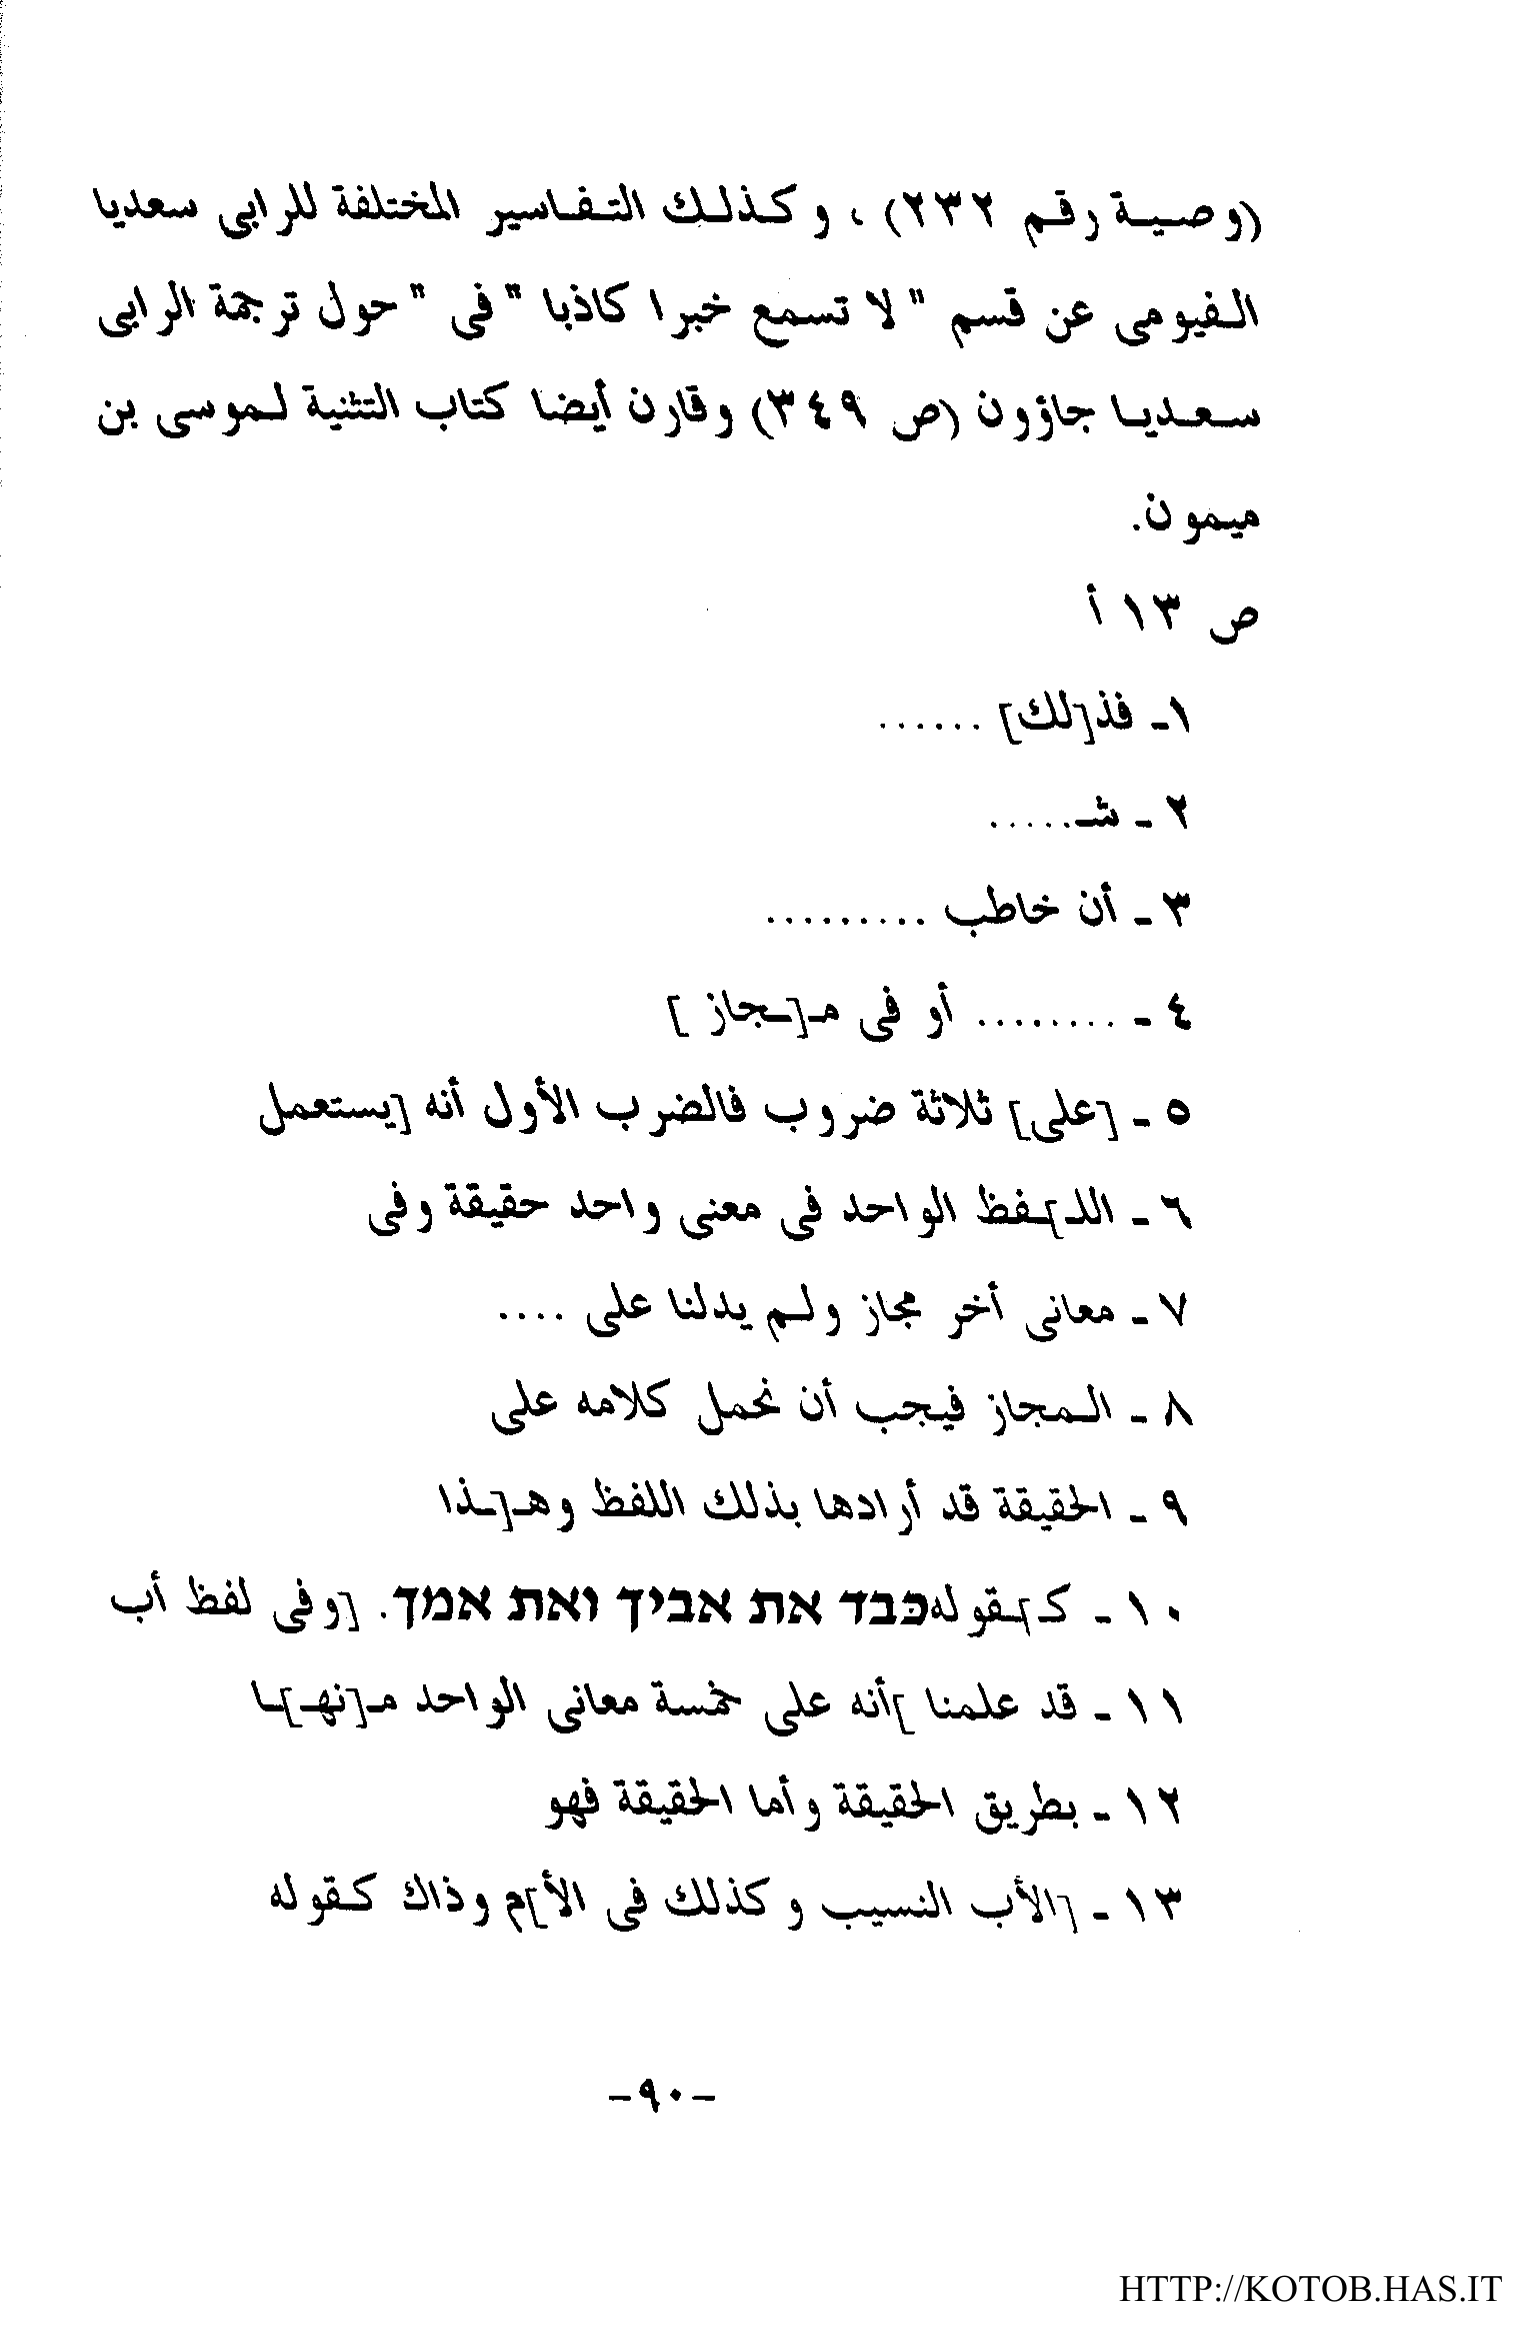 (وصية رقم ٢٣٢) ، وكذلك التفاسير المختلفة للرابى سعديا
الفيومى عن قسم " لا تسمع خبرا كاذبا " فى " حول ترجمة الرابى
سعديا جاؤون (ص ٣٤٩) وقارن أيضا كتاب التثنية لموسى بن
ميمون.
ص ١٣ أ
١- فذ[لك] ......
٢ - شـ.....
٣ - أن خاطب .........
٤ - ........ أو فى مـ[ـجاز ]
٥ - [على] ثلاثة ضروب فالضرب الأول أنه [يستعمل
٦ - اللـ]ـفظ الواحد فى معنى واحد حقيقة وفى
٧ - معانى أخر مجاز ولم يدلنا على ....
٨ - المجاز فيجب أن نحمل كلامه على
٩ - الحقيقة قد أرادها بذلك اللفظ وهـ[ـذا
١٠ - كـ]ـقوله כבד את אביך ואת אמך. [وفى لفظ أب
١١ - قد علمنا ]أنه على خمسة معانى الواحد مـ[نهـ]ـا
١٢ - بطريق الحقيقة وأما الحقيقة فهو
١٣ - [الأب النسيب وكذلك فى الأ]م وذاك كقوله
-٩٠-
HTTP://KOTOB.HAS.IT